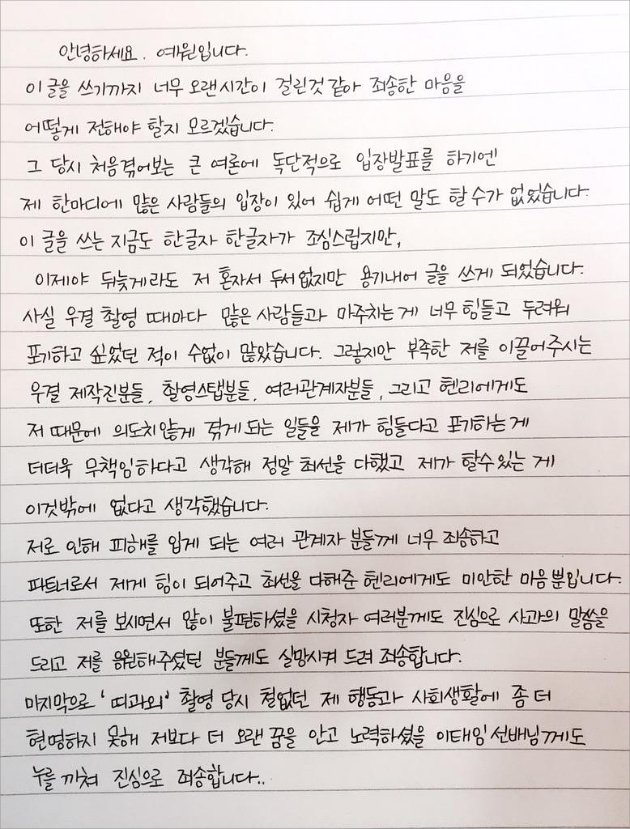 안녕하세요. 예원입니다.
이 글을 쓰기까지 너무 오랜시간이 걸린것 같아 죄송한 마음을
어떻게 전해야 할지 모르겠습니다.
그 당시 처음겪어보는 큰 여론에 독단적으로 입장발표를 하기엔
제 한마디에 많은 사람들의 입장이 있어 쉽게 어떤 말도 할 수가 없었습니다.
이 글을 쓰는 지금도 한글자 한글자가 조심스럽지만,
이제야 뒤늦게라도 저 혼자서 두서없지만 용기내어 글을 쓰게 되었습니다.
사실 우결 촬영 때마다 많은 사람들과 마주치는 게 너무 힘들고 두려워
포기하고 싶었던 적이 수없이 많았습니다. 그렇지만 부족한 저를 이끌어주시는
우결 제작진분들, 촬영스탭분들, 여러관계자분들, 그리고 헨리에게도
저 때문에 의도치않게 겪게 되는 일들을 제가 힘들다고 포기하는 게
더더욱 무책임하다고 생각해 정말 최선을 다했고 제가 할수있는 게
이것밖에 없다고 생각했습니다.
저로 인해 피해를 입게 되는 여러 관계자 분들께 너무 죄송하고
파트너로서 제게 힘이 되어주고 최선을 다해준 헨리에게도 미안한 마음뿐입니다.
또한 저를 보시면서 많이 불편하셨을 시청자 여러분께도 진심으로 사과의 말씀을
드리고 저를 응원해주셨던 분들께도 실망시켜 드려 죄송합니다.
마지막으로 '띠과외' 촬영 당시 철없던 제 행동과 사회생활에 좀 더
현명하지 못해 저보다 더 오랜 꿈을 안고 노력하셨을 이태임 선배님께도
누를 끼쳐 진심으로 죄송합니다..